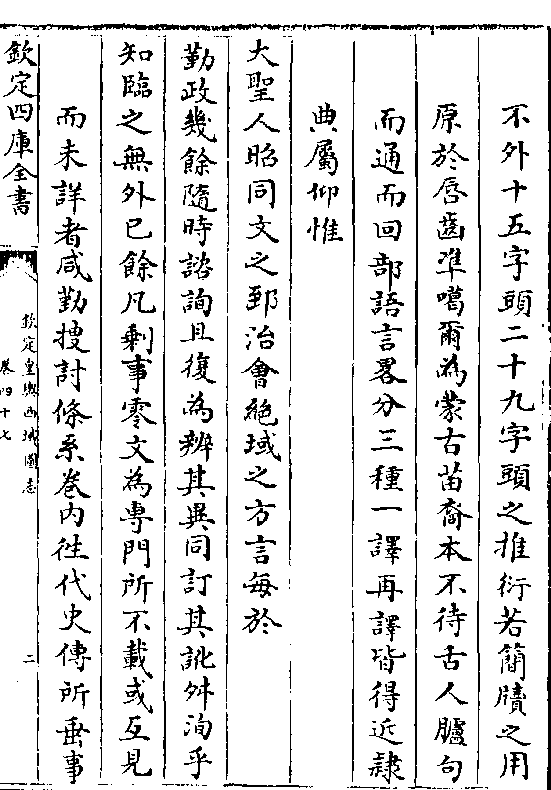 不外十五字頭二十九字頭之推衍若簡牘之用
原於唇齒凖噶爾為蒙古苗裔本不待古人臚句
而通而回部語言畧分三種一譯再譯皆得近隷
典屬仰惟
大聖人昭同文之郅治會絶域之方言每於
勤政幾餘隨時諮詢且復為辨其異同訂其訛舛洵乎
知臨之無外已餘凡剩事零文為専門所不載或互見
而未詳者咸勤搜討條系卷内徃代史傳所垂事
欽定四庫全書
欽定皇輿西域圖志
卷四十七
二